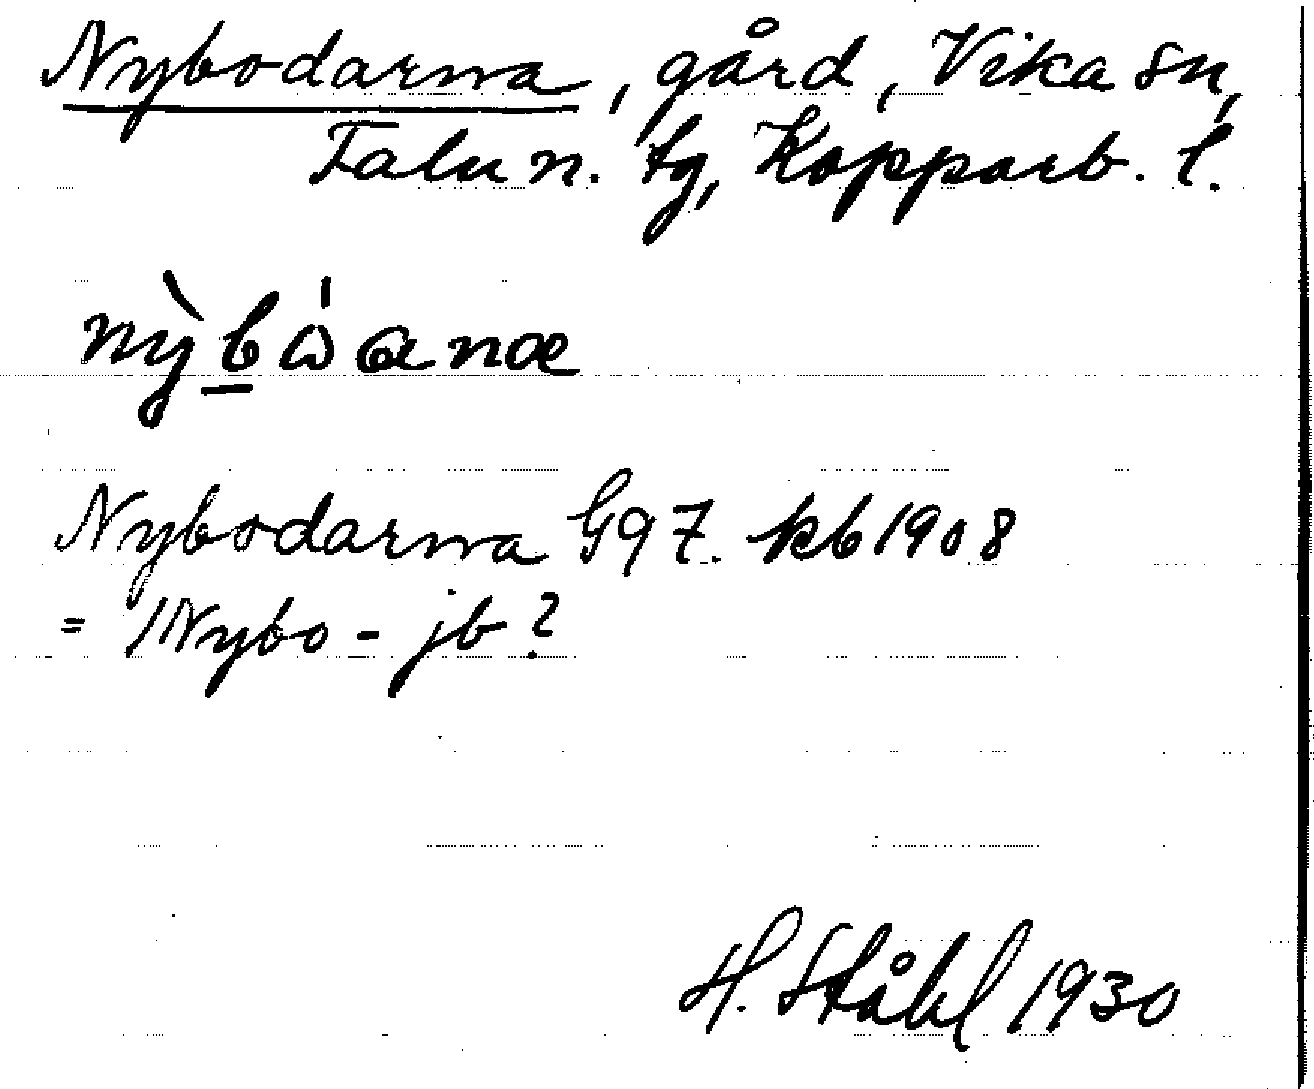 Nybodarna, gård, Vika sn,
Falu n. tg, Kopparb. l.
Nybodarna G97. kb 1908
= 1 Nybo - jb?
H. Ståhl 1930